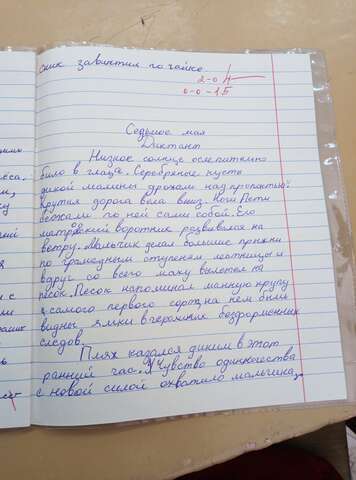 сник завинтил гогайко
2-0 4
0-0-1Б
Седьмое мая
Диктант
Низкое солнце ослепительно
било в глаза. Серебряные кусты
дикой малины дрожали над пропастью.
Крутая дорога вела вниз. Ноги Пети
бежали по ней сами собой. Его
матросский воротник развивался на
ветру. Мальчик делал большие прыжки
по громадным ступеням лестницы и
вдруг со всего маху вылетел на
песок. Песок напоминал манную крупу
самого первого сорта, на нем были
видны ямки вчерашних безформенных
следов.
Пляж казался диким в этот
ранний час. Чувство одиночества
с новой силой охватило мальчика,